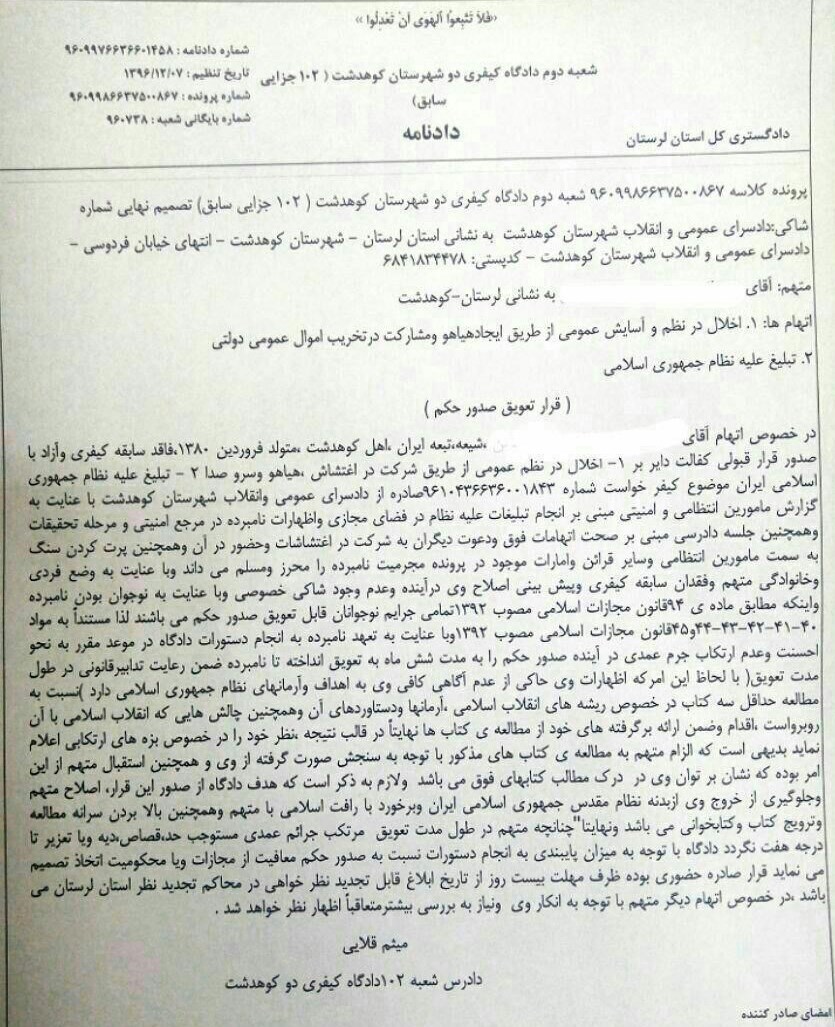 «فَلاَ تَتَّبِعوُا اَلهَوَى اَنْ تَعْدِلُوا»
شماره دادنامه : ۹۶۰۹۹۷۶۶۳۶۶۰۱۴۵۸
تاریخ تنظیم : ۱۳۹۶/۱۲/۰۷
شماره پرونده : ۹۶۰۹۹۸۶۶۳۷۵۰۰۸۶۷
شماره بایگانی شعبه : ۹۶۰۷۳۸
شعبه دوم دادگاه کیفری دو شهرستان کوهدشت ( ۱۰۲ جزایی
سابق)
دادنامه
دادگستری کل استان لرستان
پرونده کلاسه ۹۶۰۹۹۸۶۶۳۷۵۰۰۸۶۷ شعبه دوم دادگاه کیفری دو شهرستان کوهدشت ( ۱۰۲ جزایی سابق) تصمیم نهایی شماره
شاکی:دادسرای عمومی و انقلاب شهرستان کوهدشت به نشانی استان لرستان – شهرستان کوهدشت – انتهای خیابان فردوسی –
دادسرای عمومی و انقلاب شهرستان کوهدشت – کدپستی: ۶۸۴۱۸۳۴۴۷۸
متهم: آقای به نشانی لرستان-کوهدشت
اتهام ها: ۱. اخلال در نظم و آسایش عمومی از طریق ایجادهیاهو ومشارکت درتخریب اموال عمومی دولتی
۲. تبلیغ علیه نظام جمهوری اسلامی
( قرار تعویق صدور حکم )
در خصوص اتهام آقای ،شیعه،تبعه ایران ،اهل کوهدشت ،متولد فروردین ۱۳۸۰،فاقد سابقه کیفری وآزاد با
صدور قرار قبولی کفالت دایر بر ۱- اخلال در نظم عمومی از طریق شرکت در اغتشاش ،هیاهو وسرو صدا ۲ - تبلیغ علیه نظام جمهوری
اسلامی ایران موضوع کیفر خواست شماره ۹۶۱۰۴۳۶۶۳۶۰۰۱۸۴۳صادره از دادسرای عمومی وانقلاب شهرستان کوهدشت با عنایت به
گزارش مامورین انتظامی و امنیتی مبنی بر انجام تبلیغات علیه نظام در فضای مجازی واظهارات نامبرده در مرجع امنیتی و مرحله تحقیقات
وهمچنین جلسه دادرسی مبنی بر صحت اتهامات فوق ودعوت دیگران به شرکت در اغتشاشات وحضور در آن وهمچنین پرت کردن سنگ
به سمت مامورین انتظامی وسایر قرائن وامارات موجود در پرونده مجرمیت نامبرده را محرز ومسلم می داند وبا عنایت به وضع فردی
وخانوادگی متهم وفقدان سابقه کیفری وپیش بینی اصلاح وی درآینده وعدم وجود شاکی خصوصی وبا عنایت به نوجوان بودن نامبرده
واینکه مطابق ماده ی ۹۴قانون مجازات اسلامی مصوب ۱۳۹۲تمامی جرایم نوجوانان قابل تعویق صدور حکم می باشند لذا مستنداً به مواد
۴۰-۴۱-۴۲-۴۳-۴۴و۴۵قانون مجازات اسلامی مصوب ۱۳۹۲وبا عنایت به تعهد نامبرده به انجام دستورات دادگاه در موعد مقرر به نحو
احسنت وعدم ارتکاب جرم عمدی در آینده صدور حکم را به مدت شش ماه به تعویق انداخته تا نامبرده ضمن رعایت تدابیرقانونی در طول
مدت تعویق( با لحاظ این امرکه اظهارات وی حاکی از عدم آگاهی کافی وی به اهداف وآرمانهای نظام جمهوری اسلامی دارد )نسبت به
مطالعه حداقل سه کتاب در خصوص ریشه های انقلاب اسلامی ،آرمانها ودستاوردهای آن وهمچنین چالش هایی که انقلاب اسلامی با آن
روبرواست ،اقدام وضمن ارائه برگرفته های خود از مطالعه ی کتاب ها نهایتاً در قالب نتیجه ،نظر خود را در خصوص بزه های ارتکابی اعلام
نماید بدیهی است که الزام متهم به مطالعه ی کتاب های مذکور با توجه به سنجش صورت گرفته از وی و همچنین استقبال متهم از این
امر بوده که نشان بر توان وی در درک مطالب کتابهای فوق می باشد ولازم به ذکر است که هدف دادگاه از صدور این قرار، اصلاح متهم
وجلوگیری از خروج وی ازبدنه نظام مقدس جمهوری اسلامی ایران وبرخورد با رافت اسلامی با متهم وهمچنین بالا بردن سرانه مطالعه
وترویج کتاب وکتابخوانی می باشد ونهایتا"چنانچه متهم در طول مدت تعویق مرتکب جرائم عمدی مستوجب حد،قصاص،دیه ویا تعزیر تا
درجه هفت نگردد دادگاه با توجه به میزان پایبندی به انجام دستورات نسبت به صدور حکم معافیت از مجازات ویا محکومیت اتخاذ تصمیم
می نماید قرار صادره حضوری بوده ظرف مهلت بیست روز از تاریخ ابلاغ قابل تجدید نظر خواهی در محاکم تجدید نظر استان لرستان می
باشد ،در خصوص اتهام دیگر متهم با توجه به انکار وی ونیاز به بررسی بیشترمتعاقباً اظهار نظر خواهد شد .
میثم قلایی
دادرس شعبه ۱۰۲دادگاه کیفری دو کوهدشت
امضای صادر کننده